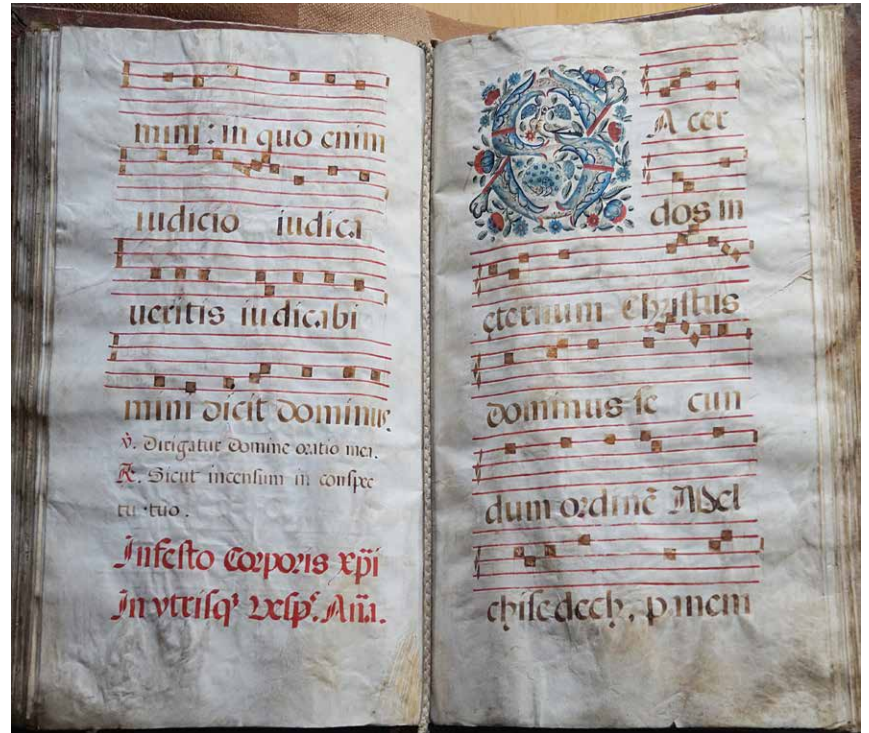 mini: in quo enim
iudicio iudica
ueritis iudicabi
mini dicit dominus.
v̇. Dirigatur domine oratio mea.
R. Sicut incensum in conspec
tu tuo.
In festo Corporis xp̄i
In vtrisqꝫ vesp̄. Añа.
SAcer
dos in
ęternum Christus
dominus se cun
dum ordinē Mel
chisedech, panem